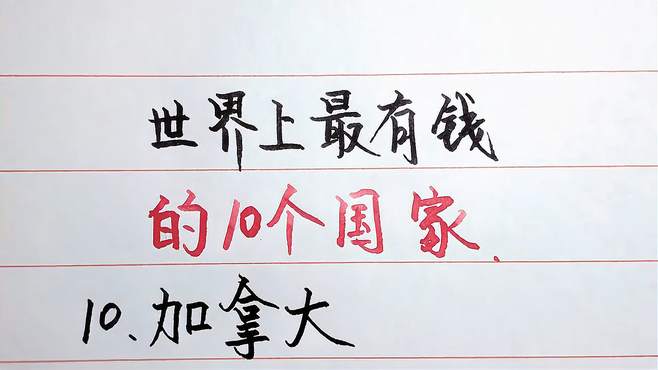 世界上最有钱
的10个国家.
10、加拿大